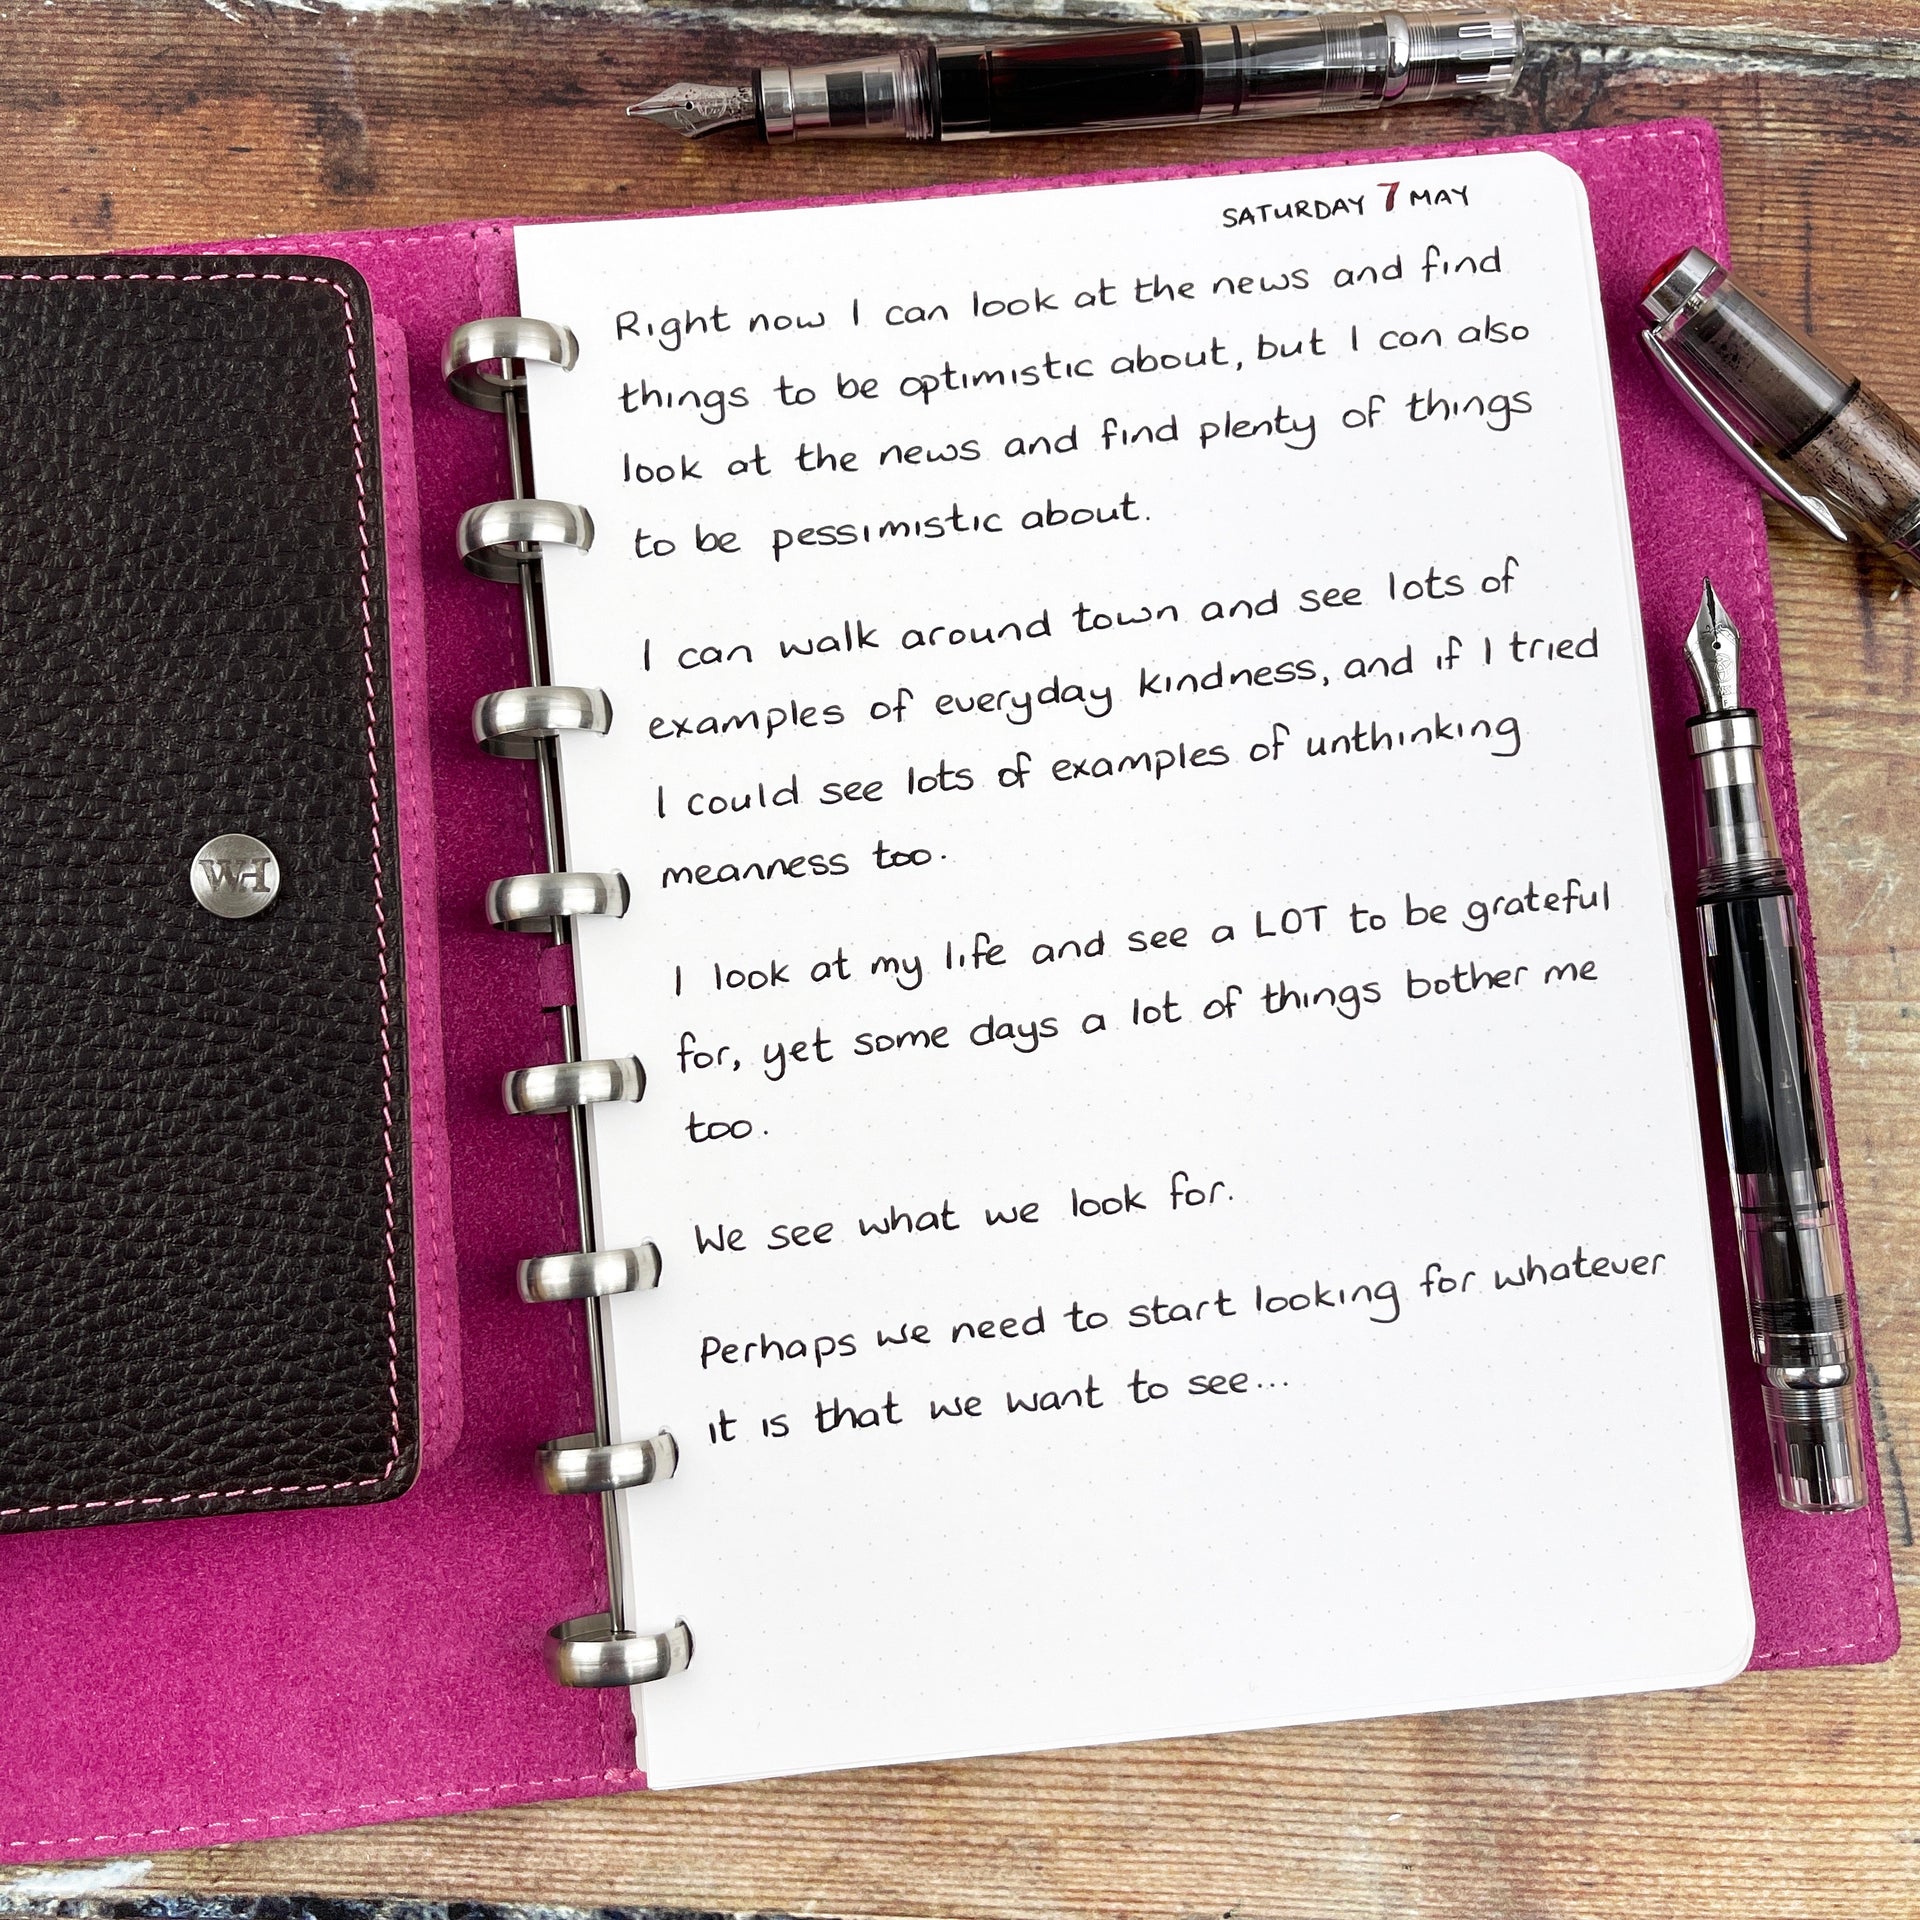 SATURDAY 7 MAY
Right now I can look at the news and find
things to be optimistic about, but I can also
look at the news and find plenty of things
to be pessimistic about.
I can walk around town and see lots of
examples of everyday kindness, and if I tried
I could see lots of examples of unthinking
meanness too.
I look at my life and see a LOT to be grateful
for, yet some days a lot of things bother me
too.
We see what we look for.
Perhaps we need to start looking for whatever
it is that we want to see...
WH